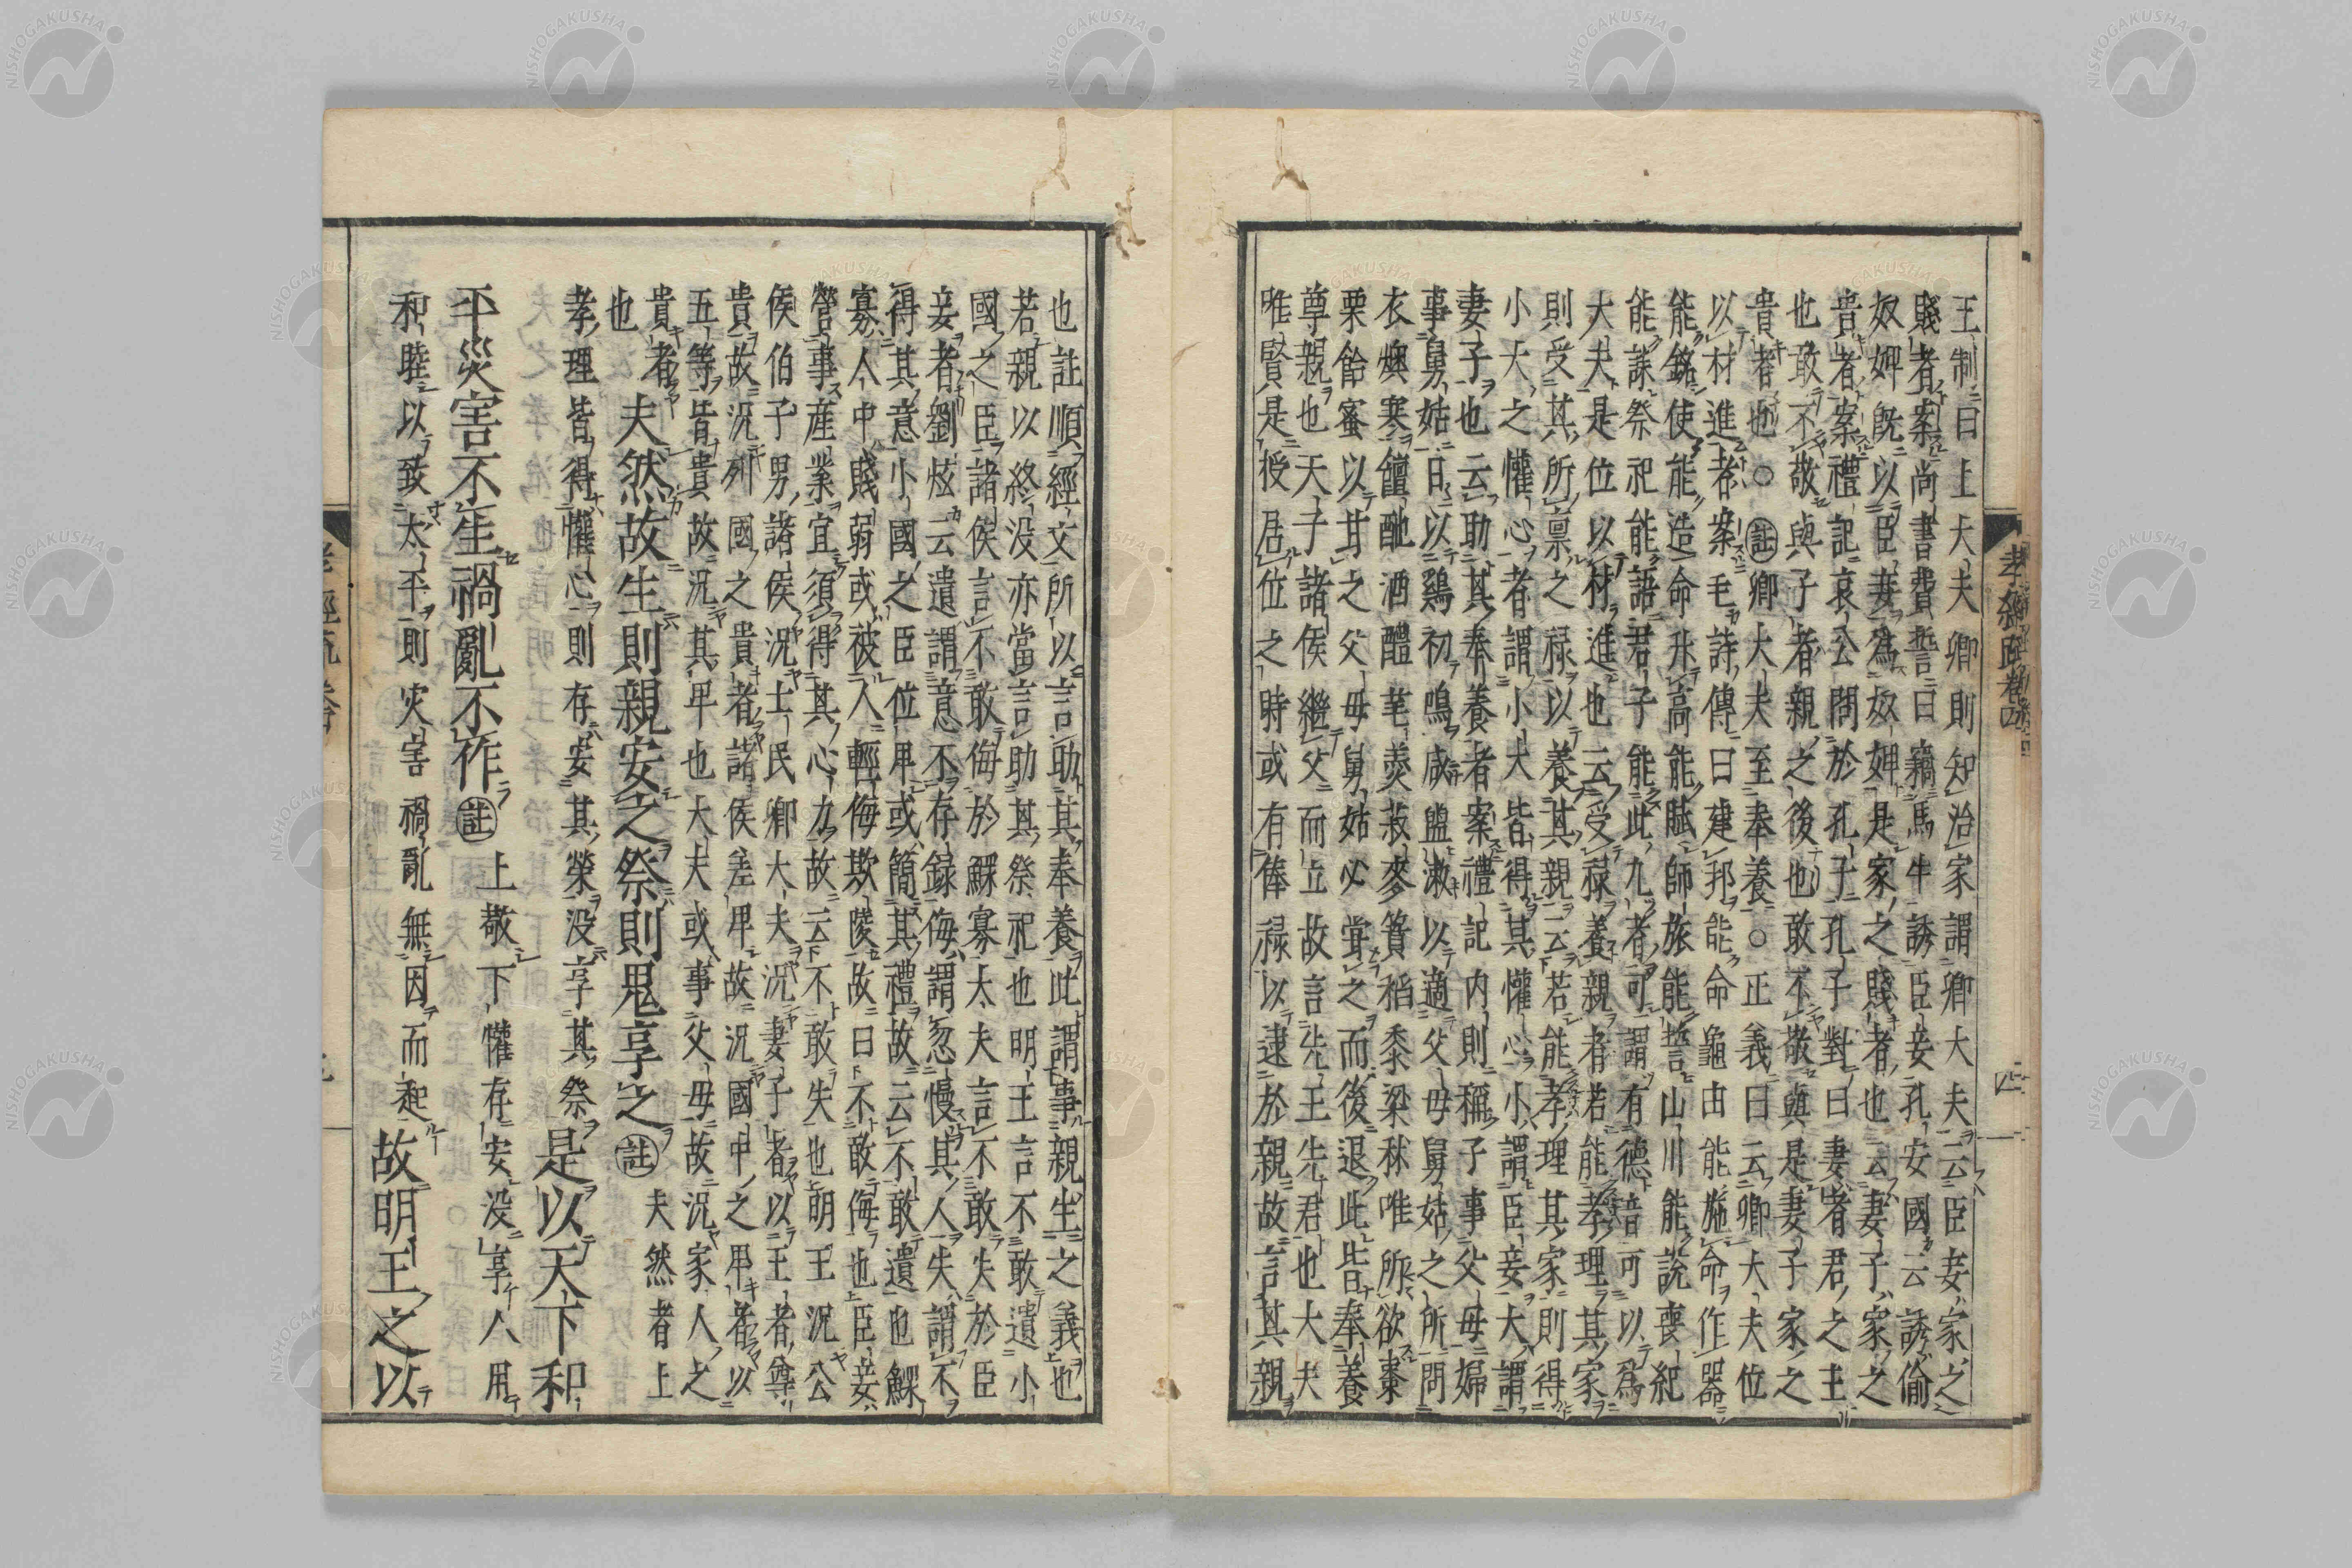 王制曰上大夫卿則知治家謂卿大夫云臣妾家之
賤者案尚書費誓曰竊馬牛誘臣妾孔安國云誘偷
奴婢既以臣妾爲奴婢是家之賤者也云妻子家之
貴者案禮記哀公問於孔子孔子對曰妻者君之主
也敢不敬與子者親之後也敢不敬與是妻子家之
貴者也○註卿大夫至奉養○正義曰云卿大夫位
以材進者案毛詩傳曰建邦能命龜由能施命作器
能銘使能造命升高能賦師旅能誓山川能說喪紀
能誄祭祀能語君子能此九者可謂有德音可以爲
大夫是位以材進也云受祿養親者若能孝理其家
則受其所稟之祿以養其親云若能孝理其家則得
小大之懽心者謂小大皆得其懽心小謂臣妾大謂
妻子也云助其奉養者案禮記内則稱子事父母婦
事舅姑日以鷄初鳴咸盥漱以適父母舅姑之所問
衣燠寒饘酏酒醴芼羮菽麥蕡稻黍粱秫唯所欲棗
栗飴蜜以甘之父母舅姑必甞之而後退此皆奉養
尊親也天子諸侯繼父而立故言先王先君也大夫
唯賢是授居位之時或有俸祿以逮於親故言其親
孝經疏卷四
四
也註順經文所以言助其奉養此謂事親生之義也
若親以終没亦當言助其祭祀也明王言不敢遺小
國之臣諸侯言不敢侮於鰥寡大夫言不敢失於臣
妾者劉炫云遺謂意不存録侮謂忽慢其人失謂不
得其意小國之臣位卑或簡其禮故云不敢遺也鰥
寡人中賤弱或被人輕侮欺陵故曰不敢侮也臣妾
營事產業宜須得其心力故云不敢失也明王況公
侯伯子男諸侯況士民卿大夫況妻子者以王者尊
貴故況列國之貴者諸侯差卑故況國中之卑者以
五等皆貴故況其卑也大夫或事父母故況家人之
貴者
也
夫然故生則親安之祭則鬼享之 註 夫然者上
孝理皆得懽心則存安其榮没享其祭 是以天下和
平災害不生禍亂不作 註 上敬下懽存安没享人用
和睦以致太平則災害禍亂無因而起 故明王之以